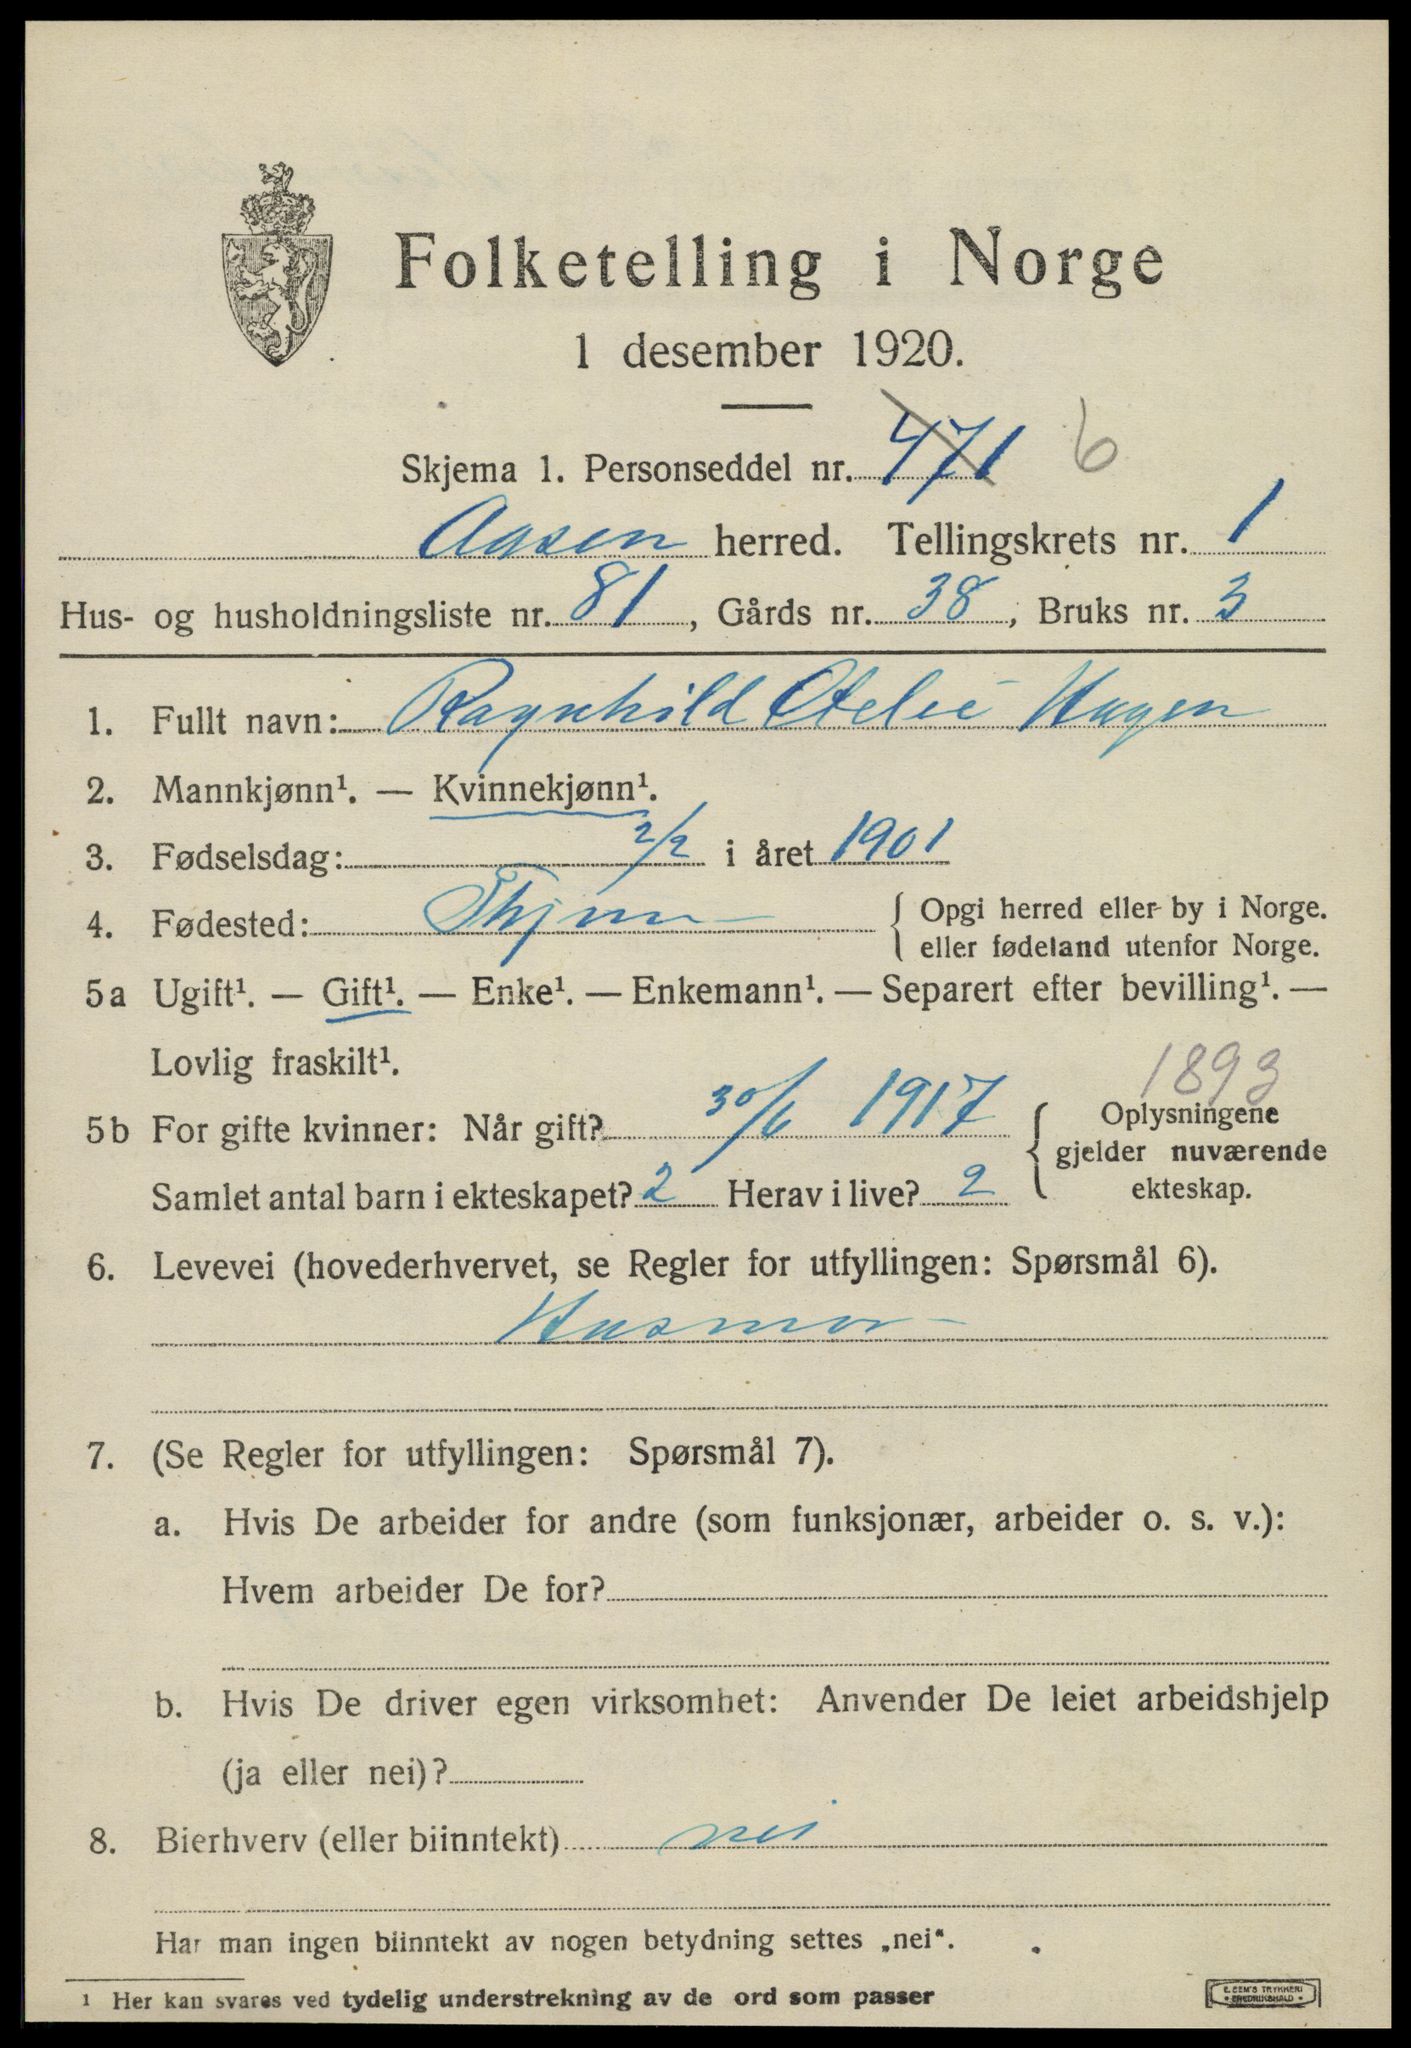 Folketelling i Norge
1 desember 1920.
Skjema 1. Personseddel nr. 471 6
Aasen herred. Tellingskrets nr. 1
Hus- og husholdningsliste nr. 81, Gårds nr. 38, Bruks nr. 3
1. Fullt navn: Ragnhild Otelie Hagen
2. Mannkjønn¹. — Kvinnekjønn¹.
3. Fødselsdag: 2/2 i året 1901
4. Fødested: { Opgi herred eller by i Norge.
eller fødeland utenfor Norge.
5a Ugift¹. — Gift¹. — Enke¹. — Enkemann¹. — Separert efter bevilling¹. —
Lovlig fraskilt¹.
1893
5b For gifte kvinner: Når gift? 30/6 1917
Samlet antal barn i ekteskapet? 2 Herav i live? 2
{ Oplysningene
gjelder nuværende
ekteskap.
6. Levevei (hovederhvervet, se Regler for utfyllingen: Spørsmål 6).
Husmor
7. (Se Regler for utfyllingen: Spørsmål 7).
a. Hvis De arbeider for andre (som funksjonær, arbeider o. s. v.):
Hvem arbeider De for?
b. Hvis De driver egen virksomhet: Anvender De leiet arbeidshjelp
(ja eller nei)?
8. Bierhverv (eller biinntekt) nei
Har man ingen biinntekt av nogen betydning settes „nei“.
¹ Her kan svares ved tydelig understrekning av de ord som passer
E. SEM'S TRYKKERI
• FREDRIKSHALD •